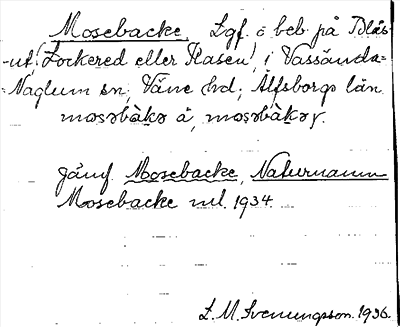 Mosebacke. Lgf. o beb. på Blås-
-ut (Lockered eller Hasen) i Vassända-
-Naglum sn. Väne hd; Älfsborgs län
mosəbàkə å, mosəbàkəɣ.
Jämf. Mosebacke, Naturnamn
Mosebacke ml. 1934
L. M. Svenungsson. 1936.